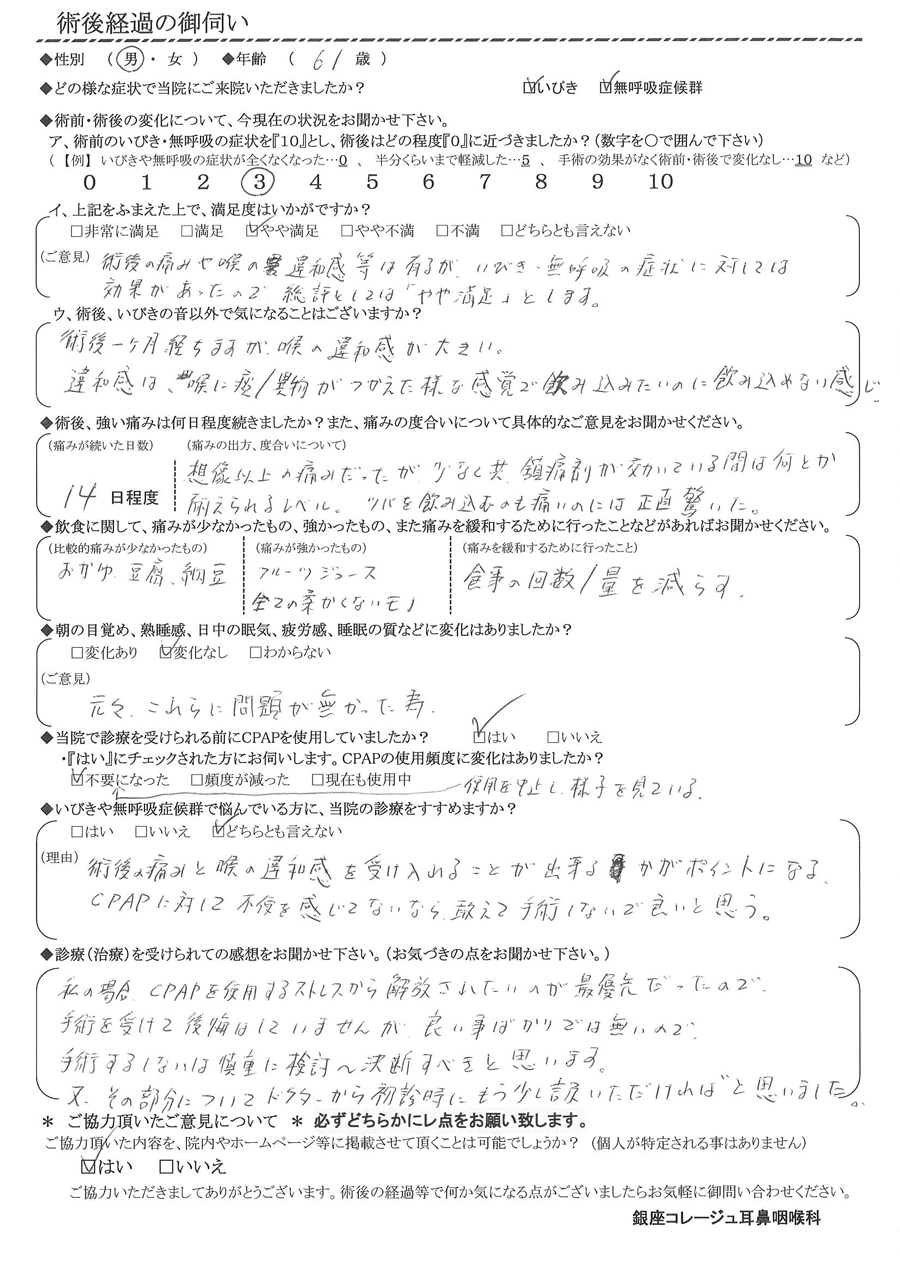 術後経過の御伺い
◆性別 (男・女) ◆年齢 ( 61 歳 )
◆どの様な症状で当院にご来院いただきましたか? ☑いびき ☑無呼吸症候群
◆術前・術後の変化について、今現在の状況をお聞かせ下さい。
ア、術前のいびき・無呼吸の症状を『10』とし、術後はどの程度『0』に近づきましたか?(数字を○で囲んで下さい)
(【例】いびきや無呼吸の症状が全くなくなった…0 、 半分くらいまで軽減した…5 、 手術の効果がなく術前・術後で変化なし…10 など)
0 1 2 3 4 5 6 7 8 9 10
イ、上記をふまえた上で、満足度はいかがですか?
□非常に満足 □満足 ☑やや満足 □やや不満 □不満 □どちらとも言えない
(ご意見) 術後の痛みや喉の違和感等は有るが、いびき・無呼吸の症状に対しては
効果があったので 総評としては「やや満足」とします。
ウ、術後、いびきの音以外で気になることはございますか?
術後一ヶ月経ちますが、喉の違和感が大きい。
違和感は、喉に痰/異物がつかえた様な感覚で飲み込みたいのに飲み込めない感じ。
◆術後、強い痛みは何日程度続きましたか?また、痛みの度合いについて具体的なご意見をお聞かせください。
(痛みが続いた日数) (痛みの出方、度合いについて)
想像以上の痛みだったが、少なく共、鎮痛剤が効いている間は何とか
14 日程度 耐えられるレベル。ツバを飲み込むのも痛いのには正直驚いた。
◆飲食に関して、痛みが少なかったもの、強かったもの、また痛みを緩和するために行ったことなどがあればお聞かせください。
(比較的痛みが少なかったもの) (痛みが強かったもの) (痛みを緩和するために行ったこと)
おかゆ、豆腐、納豆 フルーツジュース 食事の回数/量を減らす。
全ての柔かくないモノ
◆朝の目覚め、熟睡感、日中の眠気、疲労感、睡眠の質などに変化はありましたか?
□変化あり ☑変化なし □わからない
(ご意見)
元々、これらに問題が無かった為。
◆当院で診療を受けられる前にCPAPを使用していましたか? ☑はい □いいえ
・『はい』にチェックされた方にお伺いします。CPAPの使用頻度に変化はありましたか?
☑不要になった □頻度が減った □現在も使用中 使用を中止し、様子を見ている。
◆いびきや無呼吸症候群で悩んでいる方に、当院の診療をすすめますか?
□はい □いいえ ☑どちらとも言えない
(理由) 術後の痛みと喉の違和感を受け入れることが出来るかがポイントになる。
CPAPに対して不便を感じてないなら、敢えて手術しないで良いと思う。
◆診療(治療)を受けられての感想をお聞かせ下さい。(お気づきの点をお聞かせ下さい。)
私の場合、CPAPを使用するストレスから解放されたいのが最優先だったので、
手術を受けて後悔はしていませんが、良い事ばかりでは無いので、
手術するしないは慎重に検討へ決断すべきと思います。
又、その部分についてドクターから初診時にもう少し説いただければと思いました。
* ご協力頂いたご意見について * 必ずどちらかにレ点をお願い致します。
ご協力頂いた内容を、院内やホームページ等に掲載させて頂くことは可能でしょうか? (個人が特定される事はありません)
☑はい □いいえ
ご協力いただきましてありがとうございます。術後の経過等で何か気になる点がございましたらお気軽に御問い合わせください。
銀座コレージュ耳鼻咽喉科